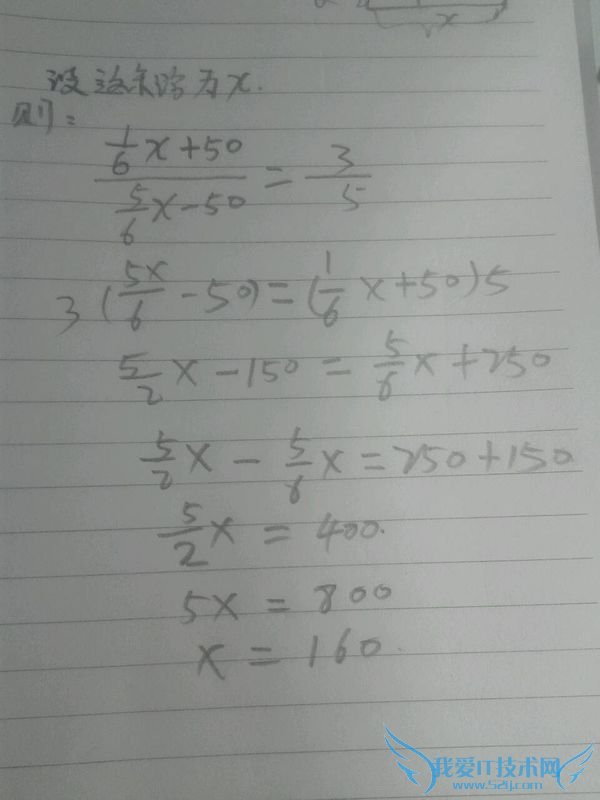 x
设这条路为x.
则：
(1/6 x+50)/(5/6 x-50) = 3/5
3(5x/6 -50)=(1/6 x+50)5
5/2 x -150 = 5/6 x +250
5/2 x - 5/6 x = 250+150
5/2 x = 400.
5x = 800
x = 160.
我爱IT技术网
www.52ij.com